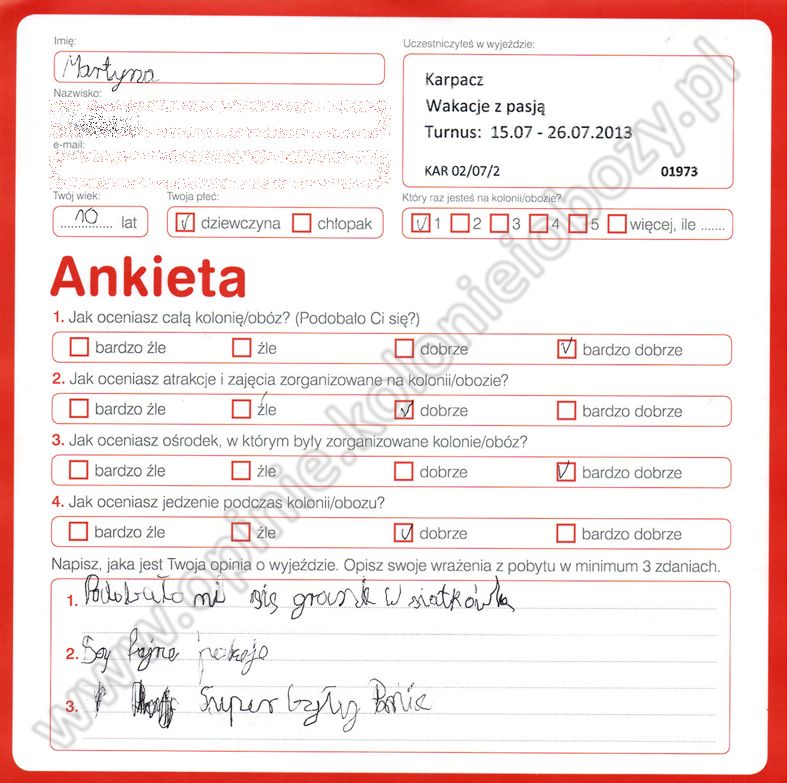 Imię:
Martyna
Nazwisko:
e-mail:
Uczestniczyłeś w wyjeździe:
Karpacz
Wakacje z pasją
Turnus: 15.07 - 26.07.2013
KAR 02/07/2 01973
Twój wiek:
10 lat
Twoja płeć:
dziewczyna chłopak
Który raz jesteś na kolonii/obozie?
1 2 3 4 5 więcej, ile .......
Ankieta
1. Jak oceniasz całą kolonię/obóz? (Podobało Ci się?)
bardzo źle źle dobrze bardzo dobrze
2. Jak oceniasz atrakcje i zajęcia zorganizowane na kolonii/obozie?
bardzo źle źle dobrze bardzo dobrze
3. Jak oceniasz ośrodek, w którym były zorganizowane kolonie/obóz?
bardzo źle źle dobrze bardzo dobrze
4. Jak oceniasz jedzenie podczas kolonii/obozu?
bardzo źle źle dobrze bardzo dobrze
Napisz, jaka jest Twoja opinia o wyjeździe. Opisz swoje wrażenia z pobytu w minimum 3 zdaniach.
1. mi się w siatkówka
2. fajne pokoje
3. Super były Panie
www.opinie.kolonieiobozy.pl